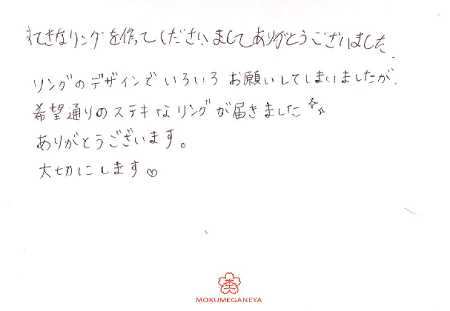 すてきなリングを作ってくださいましてありがとうございました。
リングのデザインでいろいろお願いしてしまいましたが、
希望通りのステキなリングが届きました
ありがとうございます。
大切にします♡
MOKUMEGANEYA